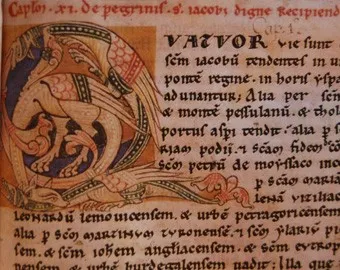 Caplm. xi. de pegrinis. s. iacobi digne recipiend
Cap. 1.
QVATVOR vie sunt
scm iacobū tendentes in u
pontē regine. in horis ysp
adunantur; Alia per scm
& montē pessulanū. & tholo
portus aspi tendit. alia p s
riam podii. & scam fidem
scm petrū de moyssaco inc
p scm maria
lena viziliac
leonardū lemovicensem. & urbē petragoricensem
alia p scm martinum turonensē. & scm ylariū pic
sem. & scm iohem angliacensem. & scm eutrop
em & urbē burdegalensem vadit; Illa que